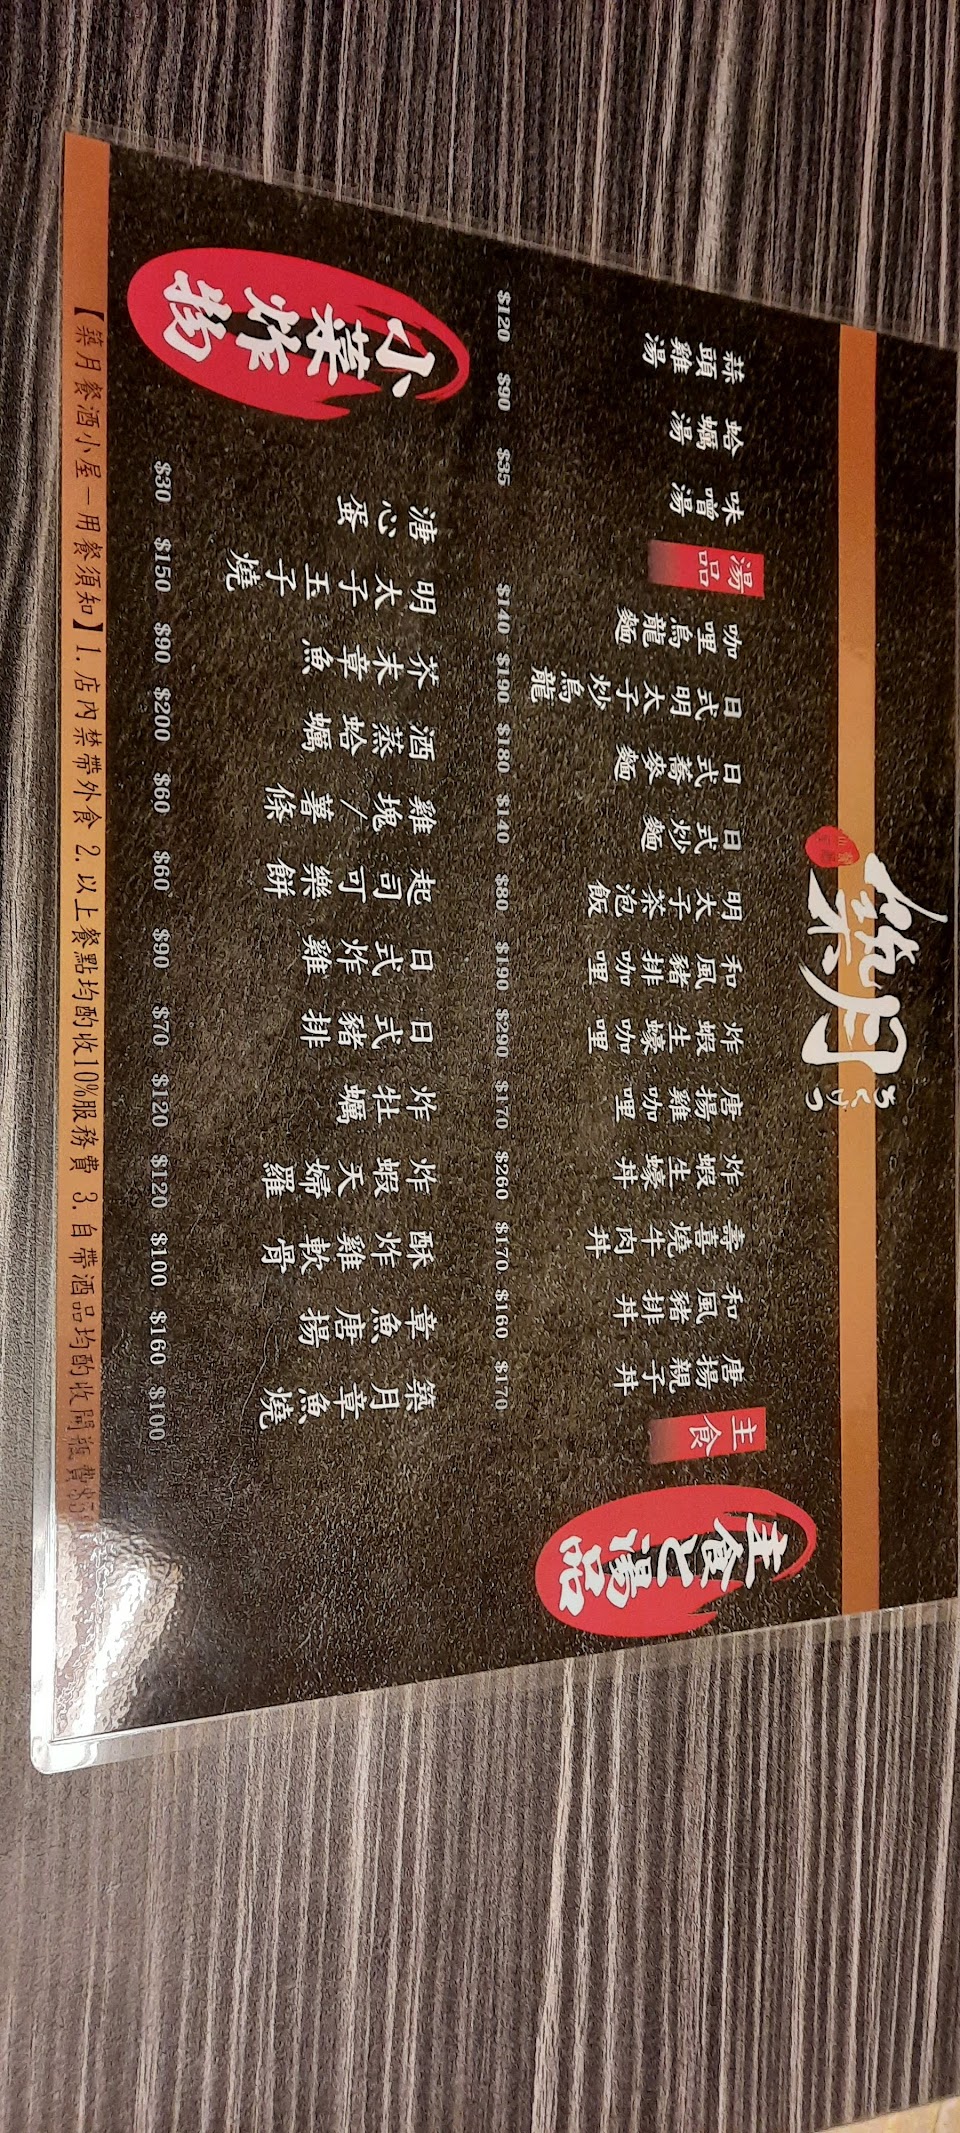 築月
ちくげつ
主食と湯品
主食
唐揚親子丼
$170
和風豬排丼
$160
壽喜燒牛肉丼
$170
炸蝦生蠔丼
$260
唐揚雞咖哩
$170
炸蝦生蠔咖哩
$290
和風豬排咖哩
$190
明太子茶泡飯
$80
日式炒麵
$140
日式蕎麥麵
$180
日式明太子炒烏龍
$190
咖哩烏龍麵
$140
湯品
味噌湯
$35
蛤蠣湯
$90
蒜頭雞湯
$120
築月章魚燒
$100
章魚唐揚
$160
酥炸雞軟骨
$100
炸蝦天婦羅
$120
炸牡蠣
$120
日式豬排
$70
日式炸雞
$90
起司可樂餅
$60
雞塊/薯條
$60
酒蒸蛤蠣
$200
芥末章魚
$90
明太子玉子燒
$150
溏心蛋
$30
小菜炸物
【築月餐酒小屋－用餐須知】1. 店內禁帶外食 2. 以上餐點均酌收10%服務費 3. 自帶酒品均酌收開瓶費